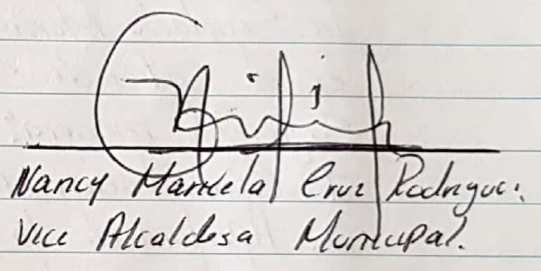 Nancy Mariela Cruz Rodriguez
Vice Alcaldesa Municipal.